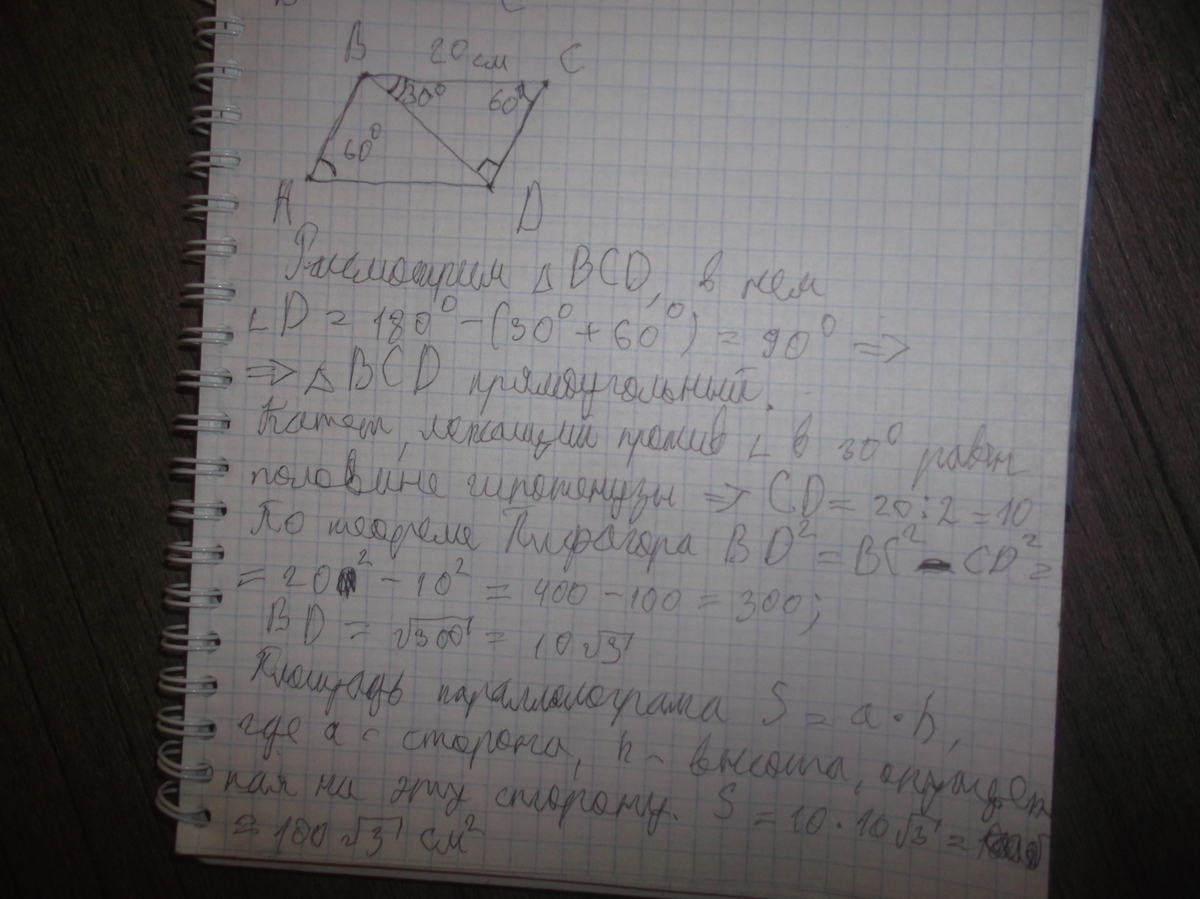 B 20 см C
30° 60°
60°
A D
Рассмотрим △ BCD, в нем
∠D = 180° - (30° + 60°) = 90° ⇒
⇒ △ BCD прямоугольный.
Катет, лежащий против ∠ в 30° равен
половине гипотенузы ⇒ CD = 20:2 = 10
По теореме Пифагора BD² = BC² - CD² =
= 20² - 10² = 400 - 100 = 300;
BD = √300 = 10√3
Площадь параллелограма S = a·h,
где a - сторона, h - высота, опущен
ная на эту сторону. S = 10·10√3 =
= 100√3 см²